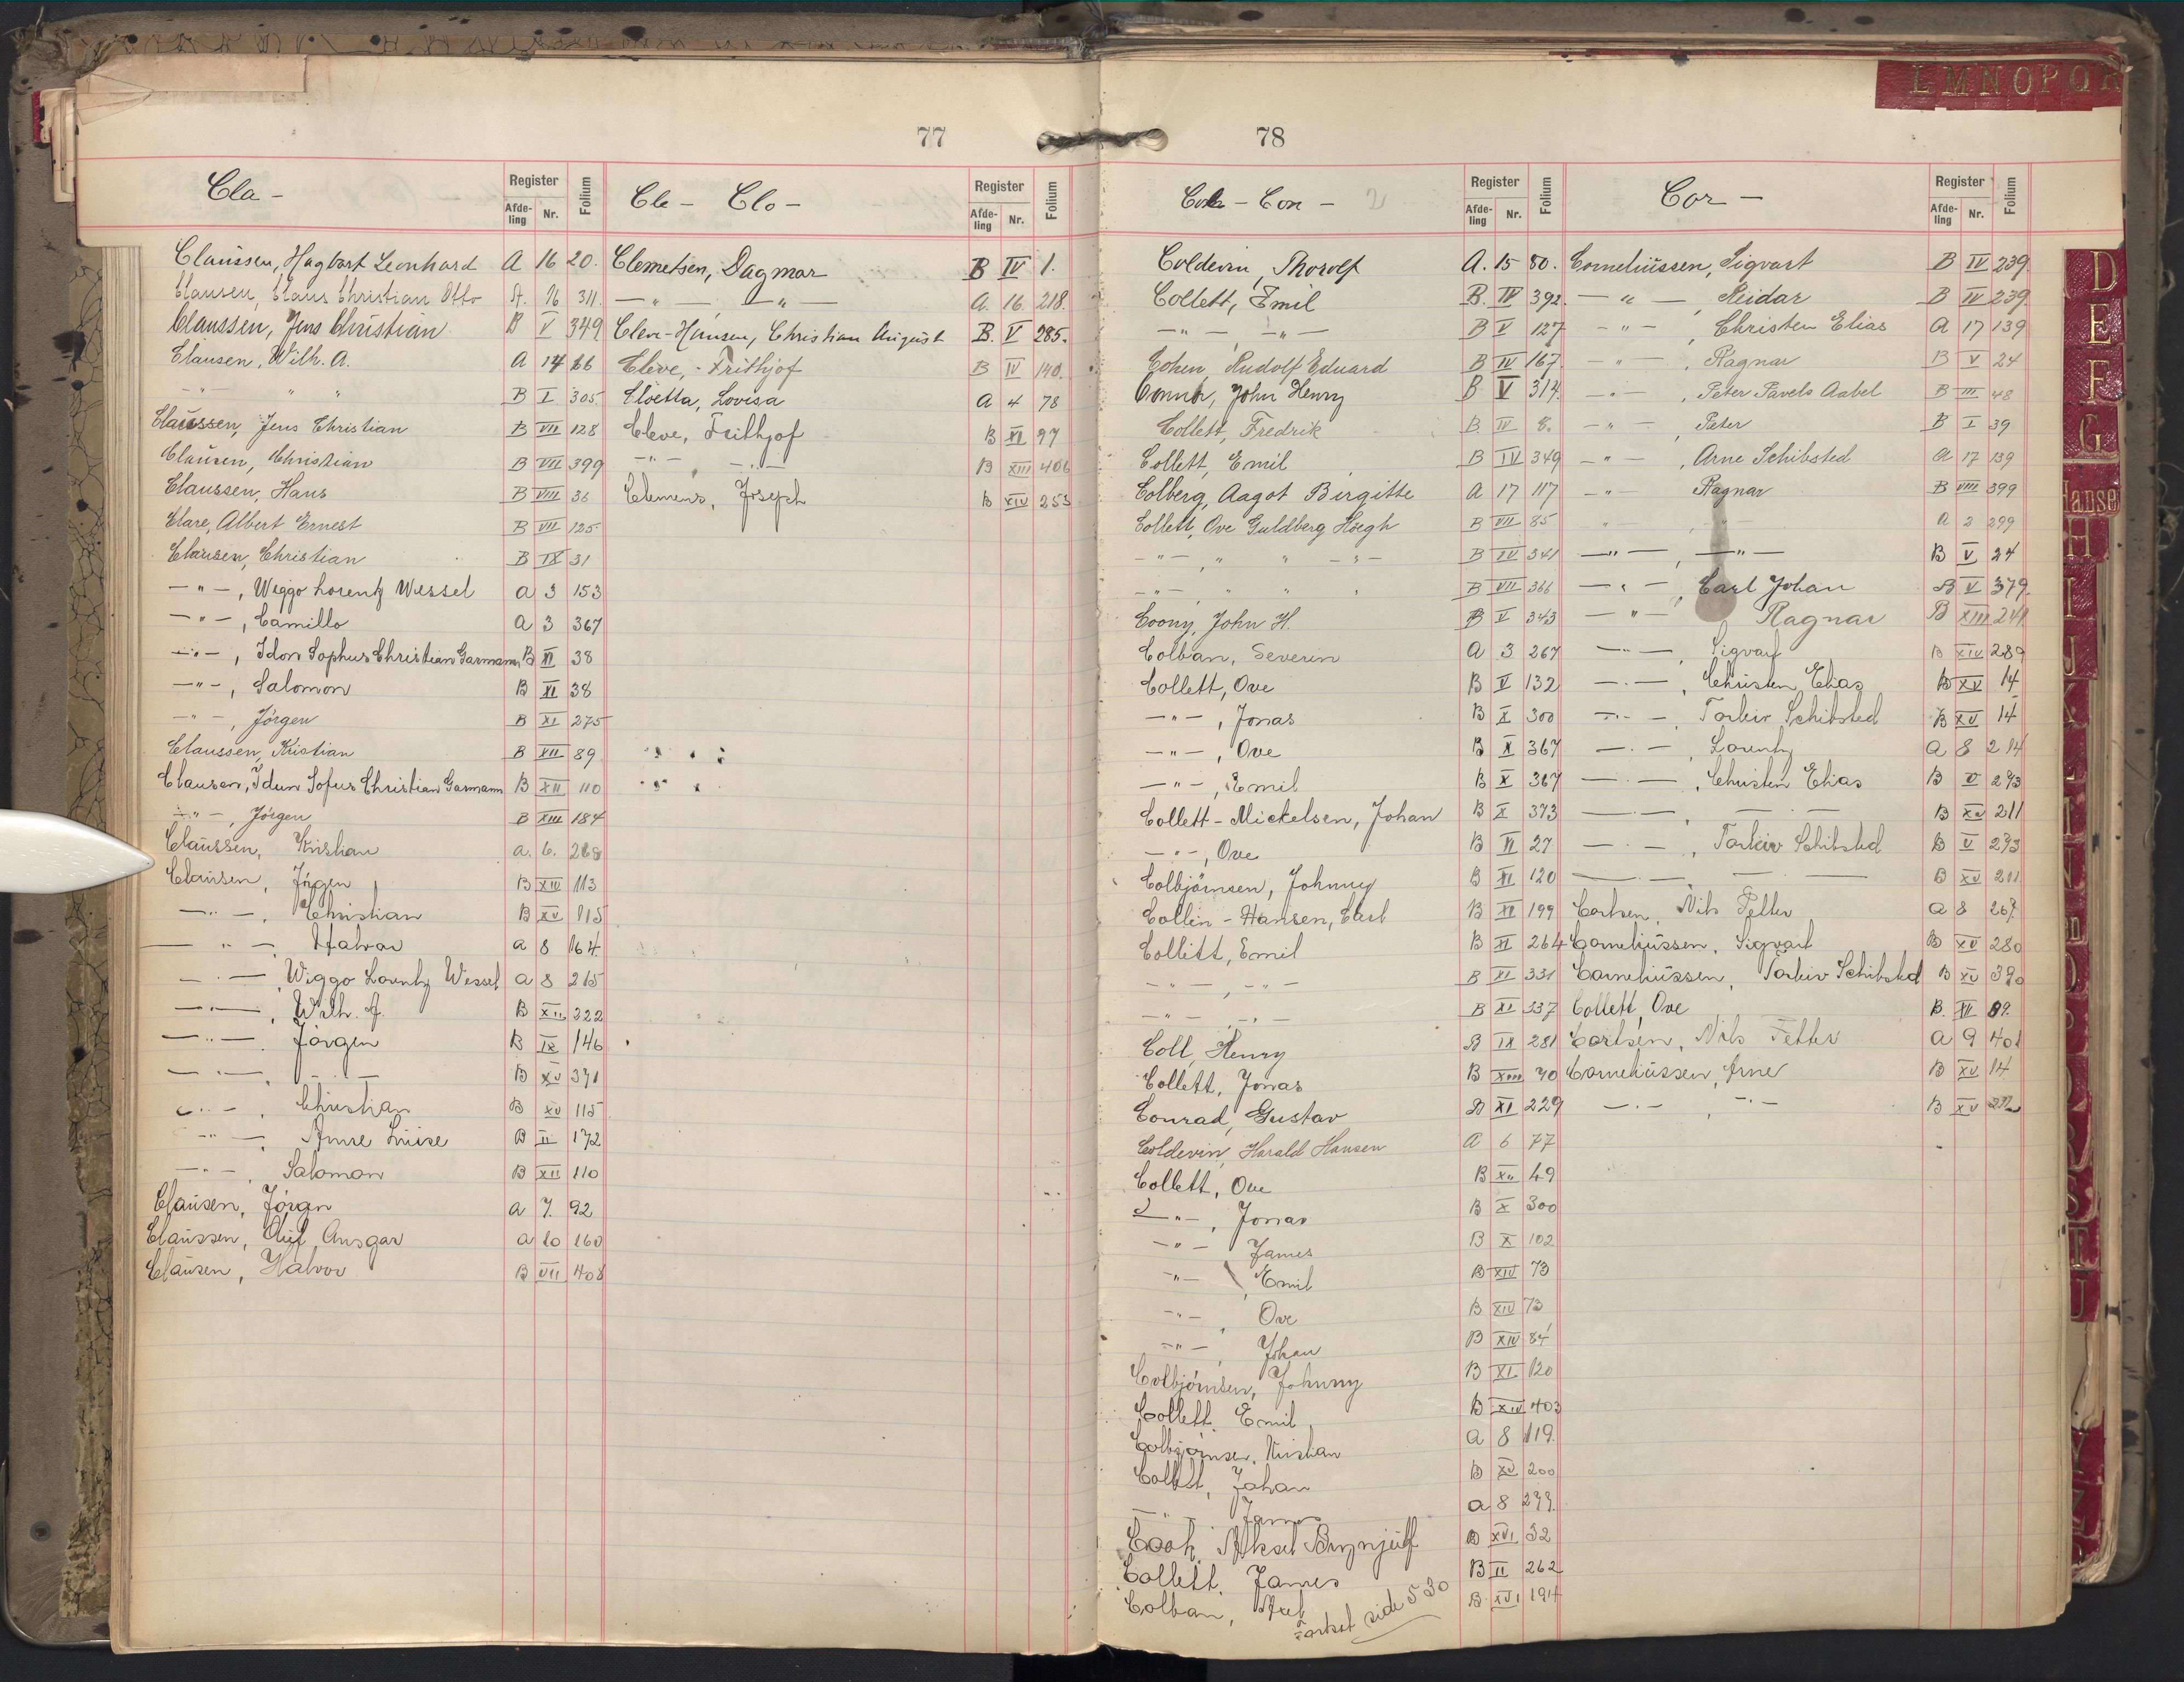 L M N O P Q R
77
Cla-
Register
Afde-
ling
Nr.
Folium
Claussen, Hagbart Leonhard A 16 20.
Clausen, Claus Christian Otto A. 16 311.
Claussen, Jens Christian B V 349
Clausen, Wilh. A. A 14 66
-"- " " B I 305
Claussen, Jens Christian B VII 128
Clausen, Christian B VII 399
Claussen, Hans B VIII 36
Clare, Albert Ernest B VII 125
Clausen, Christian B IX 31
-"-, Weggo Lorentz Wessel A 3 153
-"-, Camillo A 3 367
-"-, Idon Sophus Christian Garmann B XI 38
-"-, Salomon B XI 38
-"-, Jörgen B XI 275
Claussen, Kristian B XII 89
Clausen, Idun Sofus Christian Garmann B XII 110
-"-, Jörgen B XIII 184
Claussen, Kristian a. 6. 268
Clausen, Jörgen B XIV 113
-"-, Christian B XV 115
-"-, Halvor a 8 164.
-"-, Wiggo Lorentz Wessel a 8 215
-"-, Wilh. A. B XII 322
-"-, Jörgen B IX 146
-"-, -"- B XV 371
-"-, Christian B XV 115
-"-, Anne Luise B II 172
-"-, Salomon B XII 110
Clausen, Jörgn a 7. 92
Claussen, Oluf Ansgar a 10 160
Clausen, Halvor B VII 408
Cle- Clo-
Register
Afde-
ling
Nr.
Folium
Clemetsen, Dagmar B IV 1.
-"- -"- A. 16 218.
Cleve-Hansen, Christian August B. V 285.
Cleve, Frithjof B IV 140.
Cloëtta, Lovisa A 4 78
Cleve, Frithjof B XI 97
-"- -"- B XIII 406
Clemens, Joseph B XIV 253
78
Con-
Register
Afde-
ling
Nr.
Folium
Coldevin, Thorolf A. 15 80.
Collett, Emil B. IV 392
-"-, -"- B V 127
Cohen, Rudolf Eduard B IV 167
Connor, John Henry B V 314.
Collett, Fredrik B. IV 8.
Collett, Emil B IV 349
Colberg, Aagot Birgitte A 17 117
Collett, Ove Guldberg Höegh B VII 85
-"-, " " -"- B IV 341
-"- " " " B VII 366
Coony, John H. B V 343
Colban, Severin A 3 267
Collett, Ove B V 132
-"-, Jonas B X 300
-"-, Ove B X 367
-"-, Emil B X 367
Collett-Mickelsen, Johan B X 373
-"-, Ove B XI 27
Colbjörnsen, Johnny B XI 120
Collin-Hansen, Carl B XI 199
Collett, Emil B XI 264
-"-, -"- B XI 331
-"-, -"- B XI 337
Coll, Henry B IX 281
Collett, Jonas B XIII 70
Conrad, Gustav B XI 229
Coldevin, Harald Hansen A 6 77
Collett, Ove B XV 49
-"-, Jonas B X 300
-"- James B X 102
-"-, Emil B XIV 73
-"-, Ove B XIV 73
-"-, Johan B XIV 84
Colbjörnsen, Johnny B XI 120
Collett, Emil B XIV 403
Colbjörnsen, Kristian a 8 119.
Collett, Johan B XV 200
-"- James a 8 299.
Cook, Aksel Brynjulf B XVI 32
Collett, James B II 262
Colban, Axel B. XVI 194
Fortsat side 530
Cor-
Register
Afde-
ling
Nr.
Folium
Corneliussen, Sigvart B IV 239
-"-, Reidar B IV 239
-"-, Christen Elias A 17 139
-"-, Ragnar B V 24
-"-, Peter Pavels Aabel B III 48
-"- Peter B I 39
-"-, Arne Schibsted A 17 139
-"- Ragnar B VIII 399
" " A 2 299
-"-, -"- B V 24
-"-, Carl Johan B V 379
-"- Ragnar B XIII 241
-"-, Sigvart B XIV 289
-"-, Christen Elias B XV 14
-"-, Torleiv Schibsted B XV 14
-"-, Lorentz a 8 214
-"-, Christen Elias B V 293
-"-, -"- B XV 211
-"-, Torleiv Schibsted B V 293
B XV 211
Corlsen, Nils Petter a 8 267
Corneliussen, Sigvart B XV 280
Corneliussen, Torleiv Schibsted B XV 390
Collett, Ove B. XII 89.
Corlsen, Nils Petter a 9 401
Corneliussen, Arne B XV 14
-"-, -"- B XV
D
E
F
G
Hanse
H
I
J